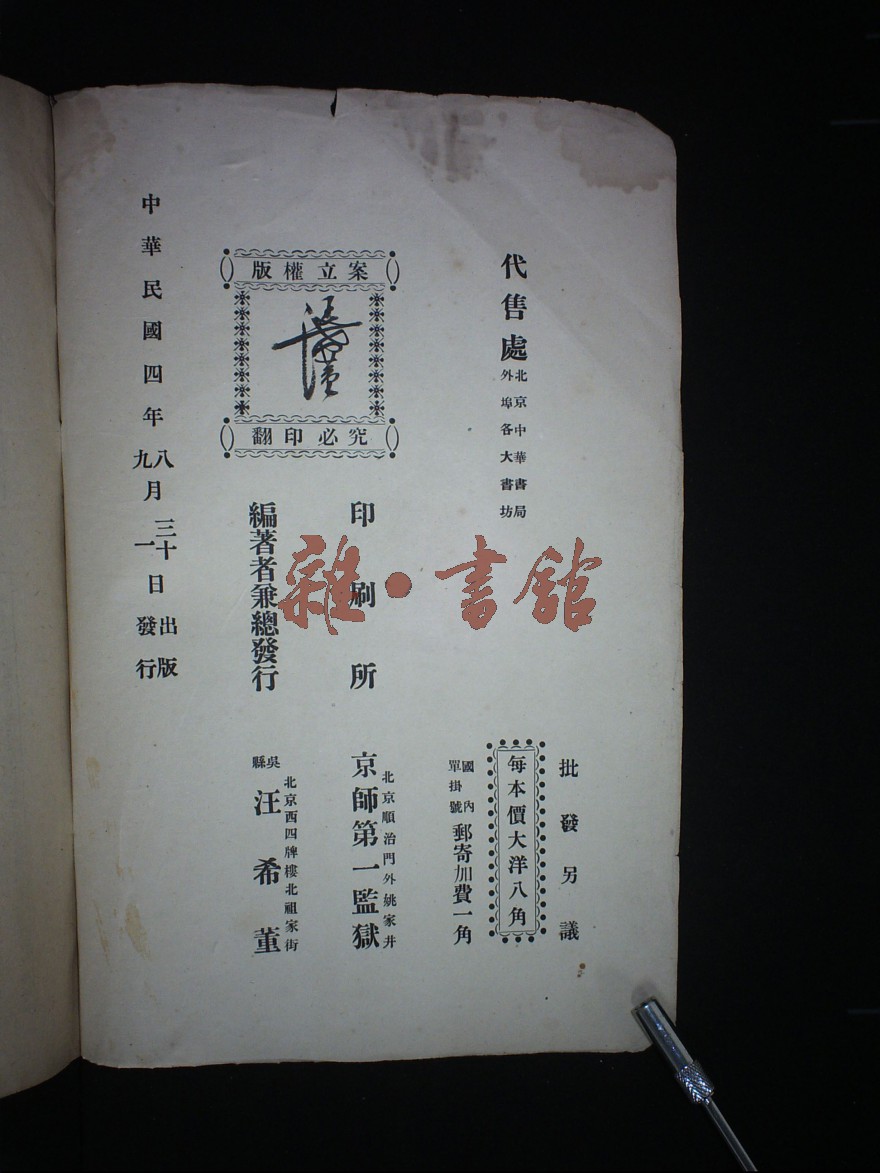 批發另議
每本價大洋八角
國內
單掛號
郵寄加費一角
代售處
北京中華書局
外埠各大書坊
北京順治門外姚家井
印刷所 京師第一監獄
北京西四牌樓北祖家街
編著者兼總發行 吳縣 汪希董
版權立案
翻印必究
中華民國四年
八月三十日出版
九月一日發行
雜·書館